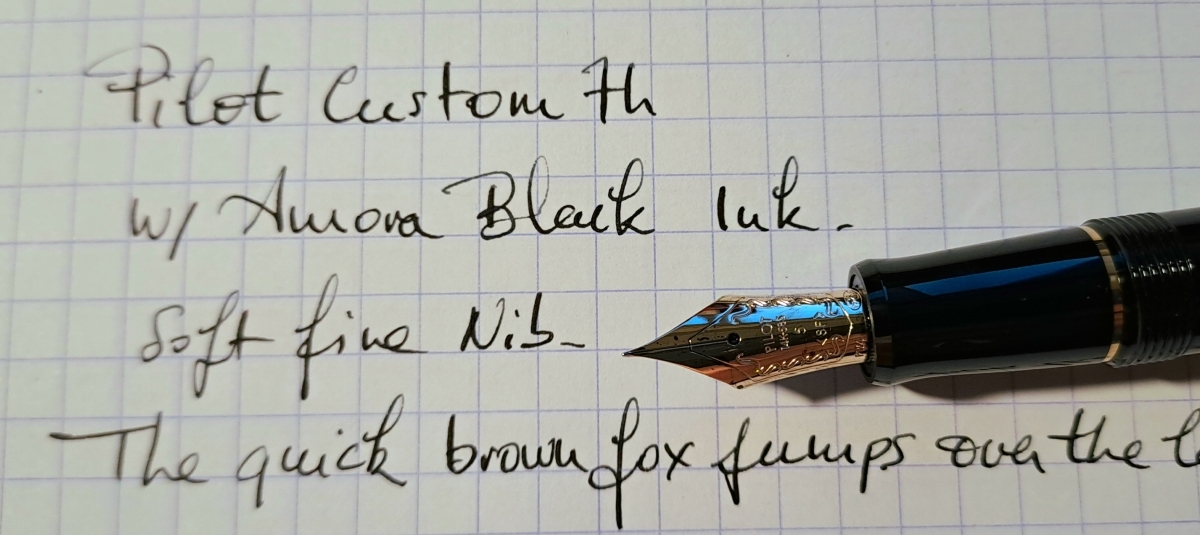 Pilot Custom 74
w/ Aurora Black Ink.
Soft fine Nib-
The quick brown fox jumps over the
PILOT
5
SF